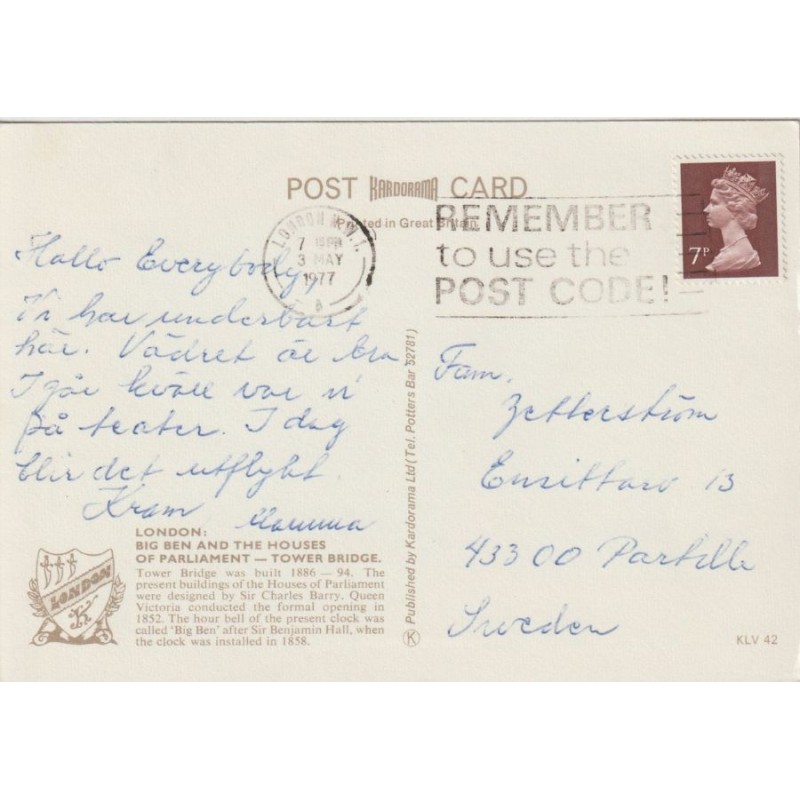 POST KARDORAMA CARD
Printed in Great Britain
LONDON N.W.1.
7 PM
3 MAY
1977
REMEMBER
to use the
POST CODE!
7P
Hallo Everybody,
Vi har underbart
här. Vädret är bra
I går kväll var vi
på teater. I dag
blir det utflykt.
Kram Mamma
LONDON:
BIG BEN AND THE HOUSES
OF PARLIAMENT — TOWER BRIDGE.
Tower Bridge was built 1886 — 94. The
present buildings of the Houses of Parliament
were designed by Sir Charles Barry. Queen
Victoria conducted the formal opening in
1852. The hour bell of the present clock was
called 'Big Ben' after Sir Benjamin Hall, when
the clock was installed in 1858.
LONDON
Published by Kardorama Ltd (Tel. Potters Bar 52781)
K
Fam.
Zetterström
13
43300 Partille
Sweden
KLV 42